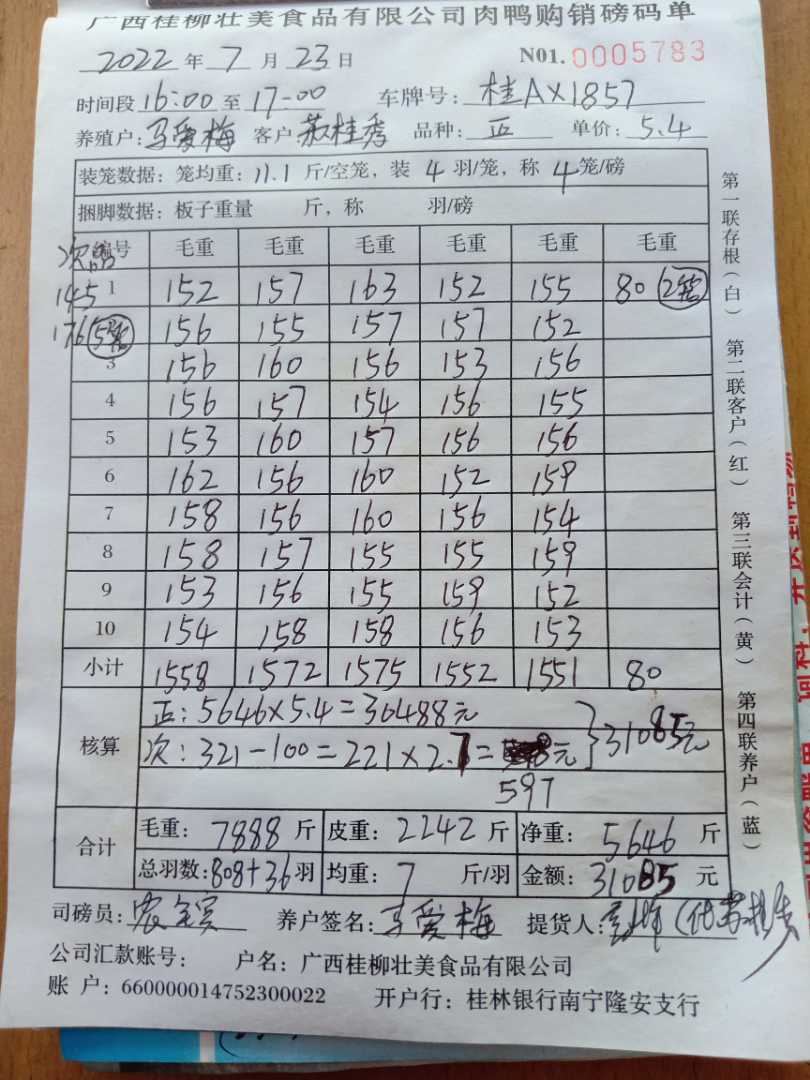 广西桂柳壮美食品有限公司肉鸭购销磅码单
2022 年 7 月 23 日 N01. 0005783
时间段 16:00 至 17-00 车牌号: 桂AX1857
养殖户: 马爱梅 客户 苏桂秀 品种: 正 单价: 5.4
装笼数据: 笼均重: 11.1 斤/空笼, 装 4 羽/笼, 称 4 笼/磅
捆脚数据: 板子重量 斤, 称 羽/磅
次 编号 毛重 毛重 毛重 毛重 毛重 毛重
145 1 152 157 163 152 155 80 2笼
176 5笼 156 155 157 157 152
3 156 160 156 153 156
4 156 157 154 156 155
5 153 160 157 156 156
6 162 156 160 152 159
7 158 156 160 156 154
8 158 157 155 155 159
9 153 156 155 159 152
10 154 158 158 156 153
小计 1558 1572 1575 1552 1551 80
核算 正: 5646×5.4=30488元
次: 321-100=221×2.7= 元 }31085元
597
合计 毛重: 7888 斤 皮重: 2242 斤 净重: 5646 斤
总羽数: 808+36 羽 均重: 7 斤/羽 金额: 31085 元
司磅员: 农 宾 养户签名: 马爱梅 提货人:
公司汇款账号: 户名: 广西桂柳壮美食品有限公司
账 户: 660000014752300022 开户行: 桂林银行南宁隆安支行
第一联存根(白) 第二联客户(红) 第三联会计(黄) 第四联养户(蓝)